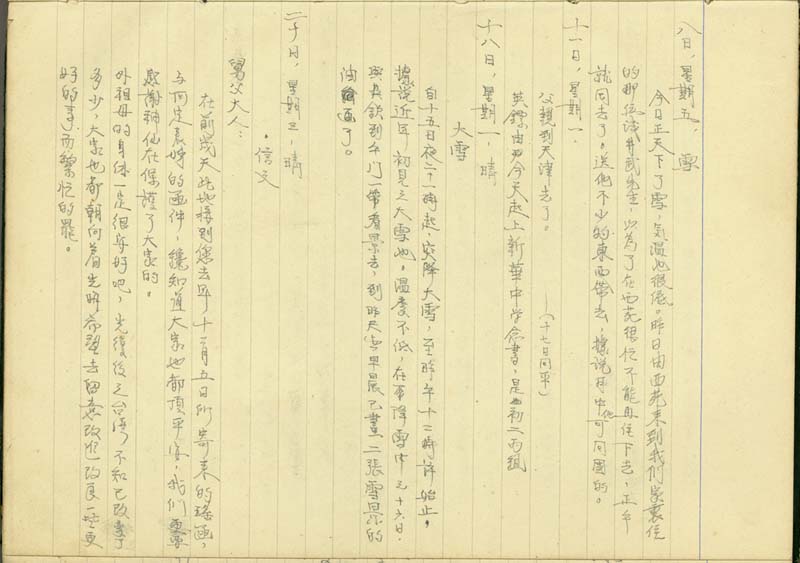 八日，星期五，雪
今日正天下了雪，氣溫也很低。昨日由西苑来到我們家裏住
的那位淺井武先生，以為了在西苑很忙不能再住下去，正午
就回去了。送他不少的東西帶去，據说月中他可回國的。
十一日，星期一．
父親到天津去了。 —（十七日回平）
英鐸由　今天起上新華中学念書，是　初二丙組
十八日，星期一，晴
大雪
自十五日夜十一時起，突降大雪，至昨午十二時許始止，
據说近年初見之大雪也。溫度不低，在
與　到午门一帶看景去，到昨天　早晨已畫二張雪景的
油画了。
二十日，星期三，晴
．信文
舅父大人：
在前幾天此地接到您去年十二月五日所寄来的瑤函，
与同　的函件，纔知道大家也都頂平安，我们
感謝神仙在保護了大家的。
外祖母的身体一定很安好吧，光復後之台湾不知已改
多少，大家也都朝向着光明希望去留意改　改良一些更
好的事而繁忙的罷。